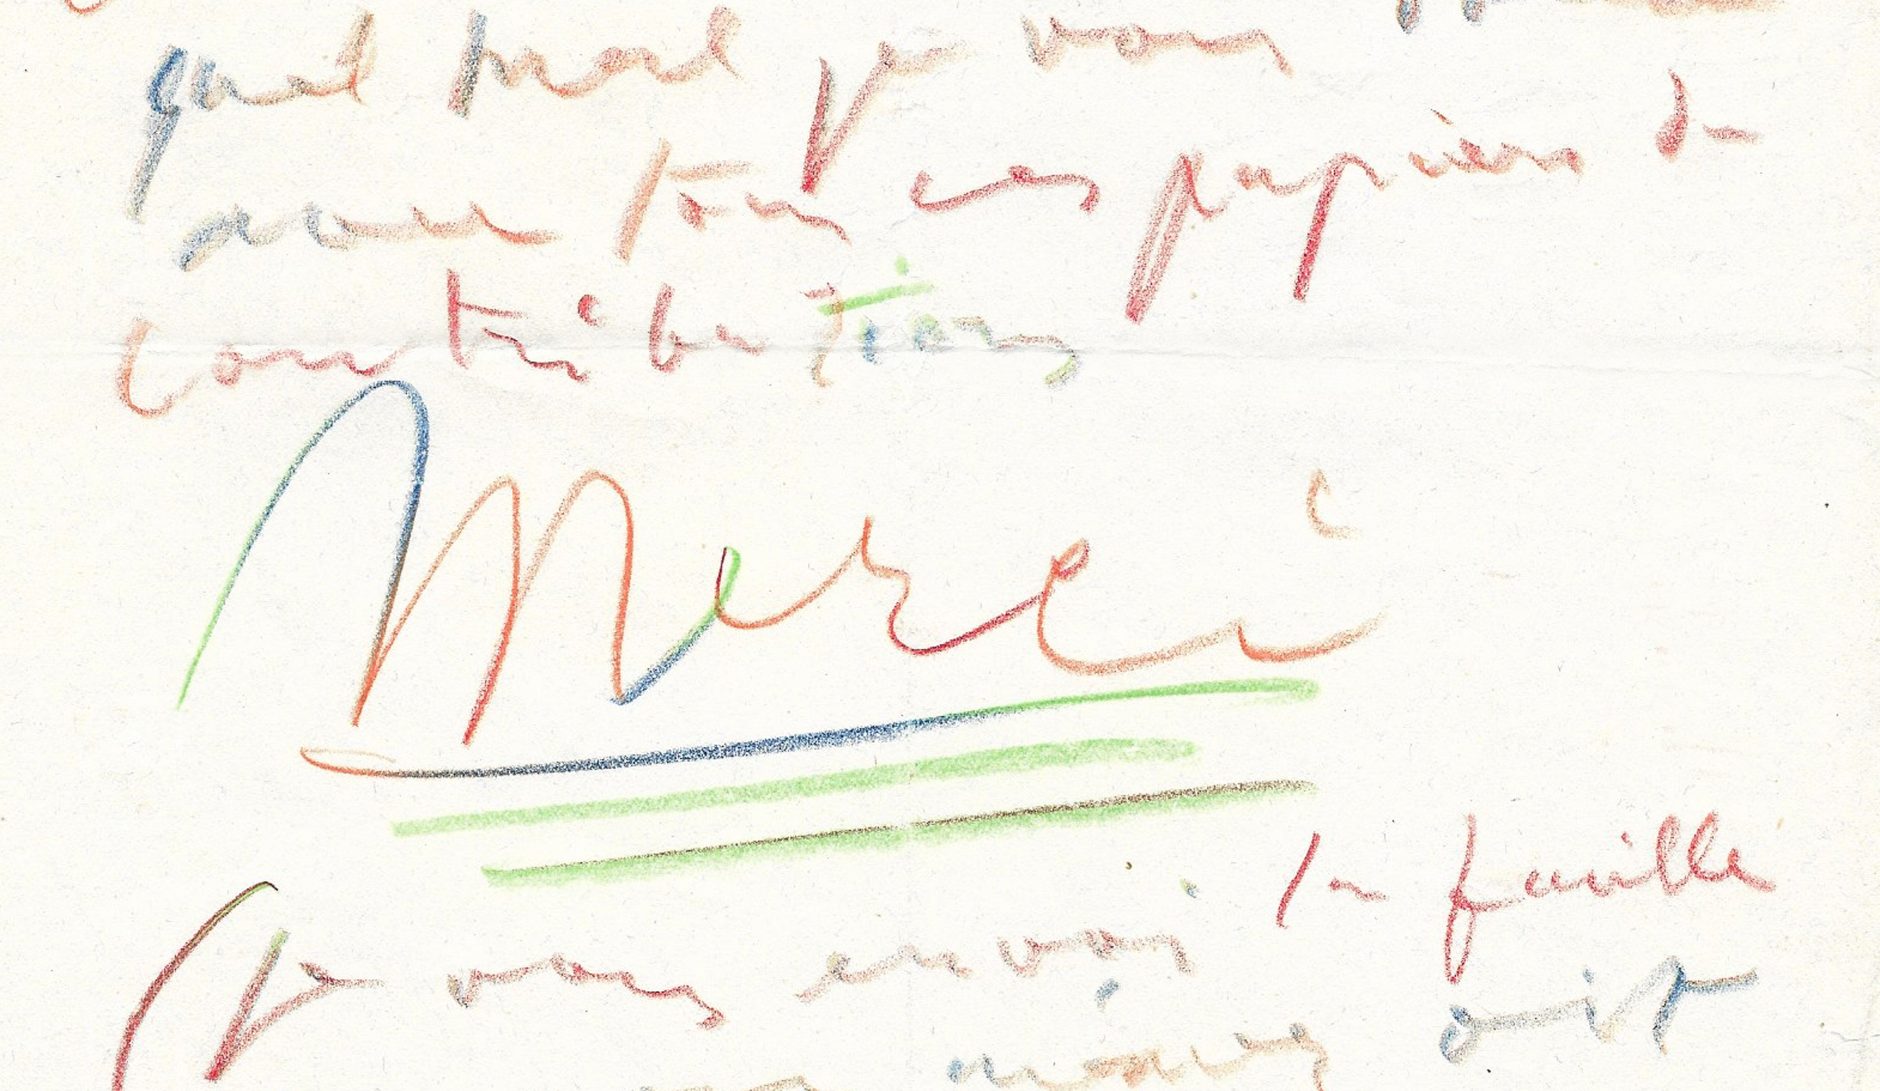 quel mal je vous
avec tous ces papiers de
Contributions
Merci
(je vous envoi la feuille
soit